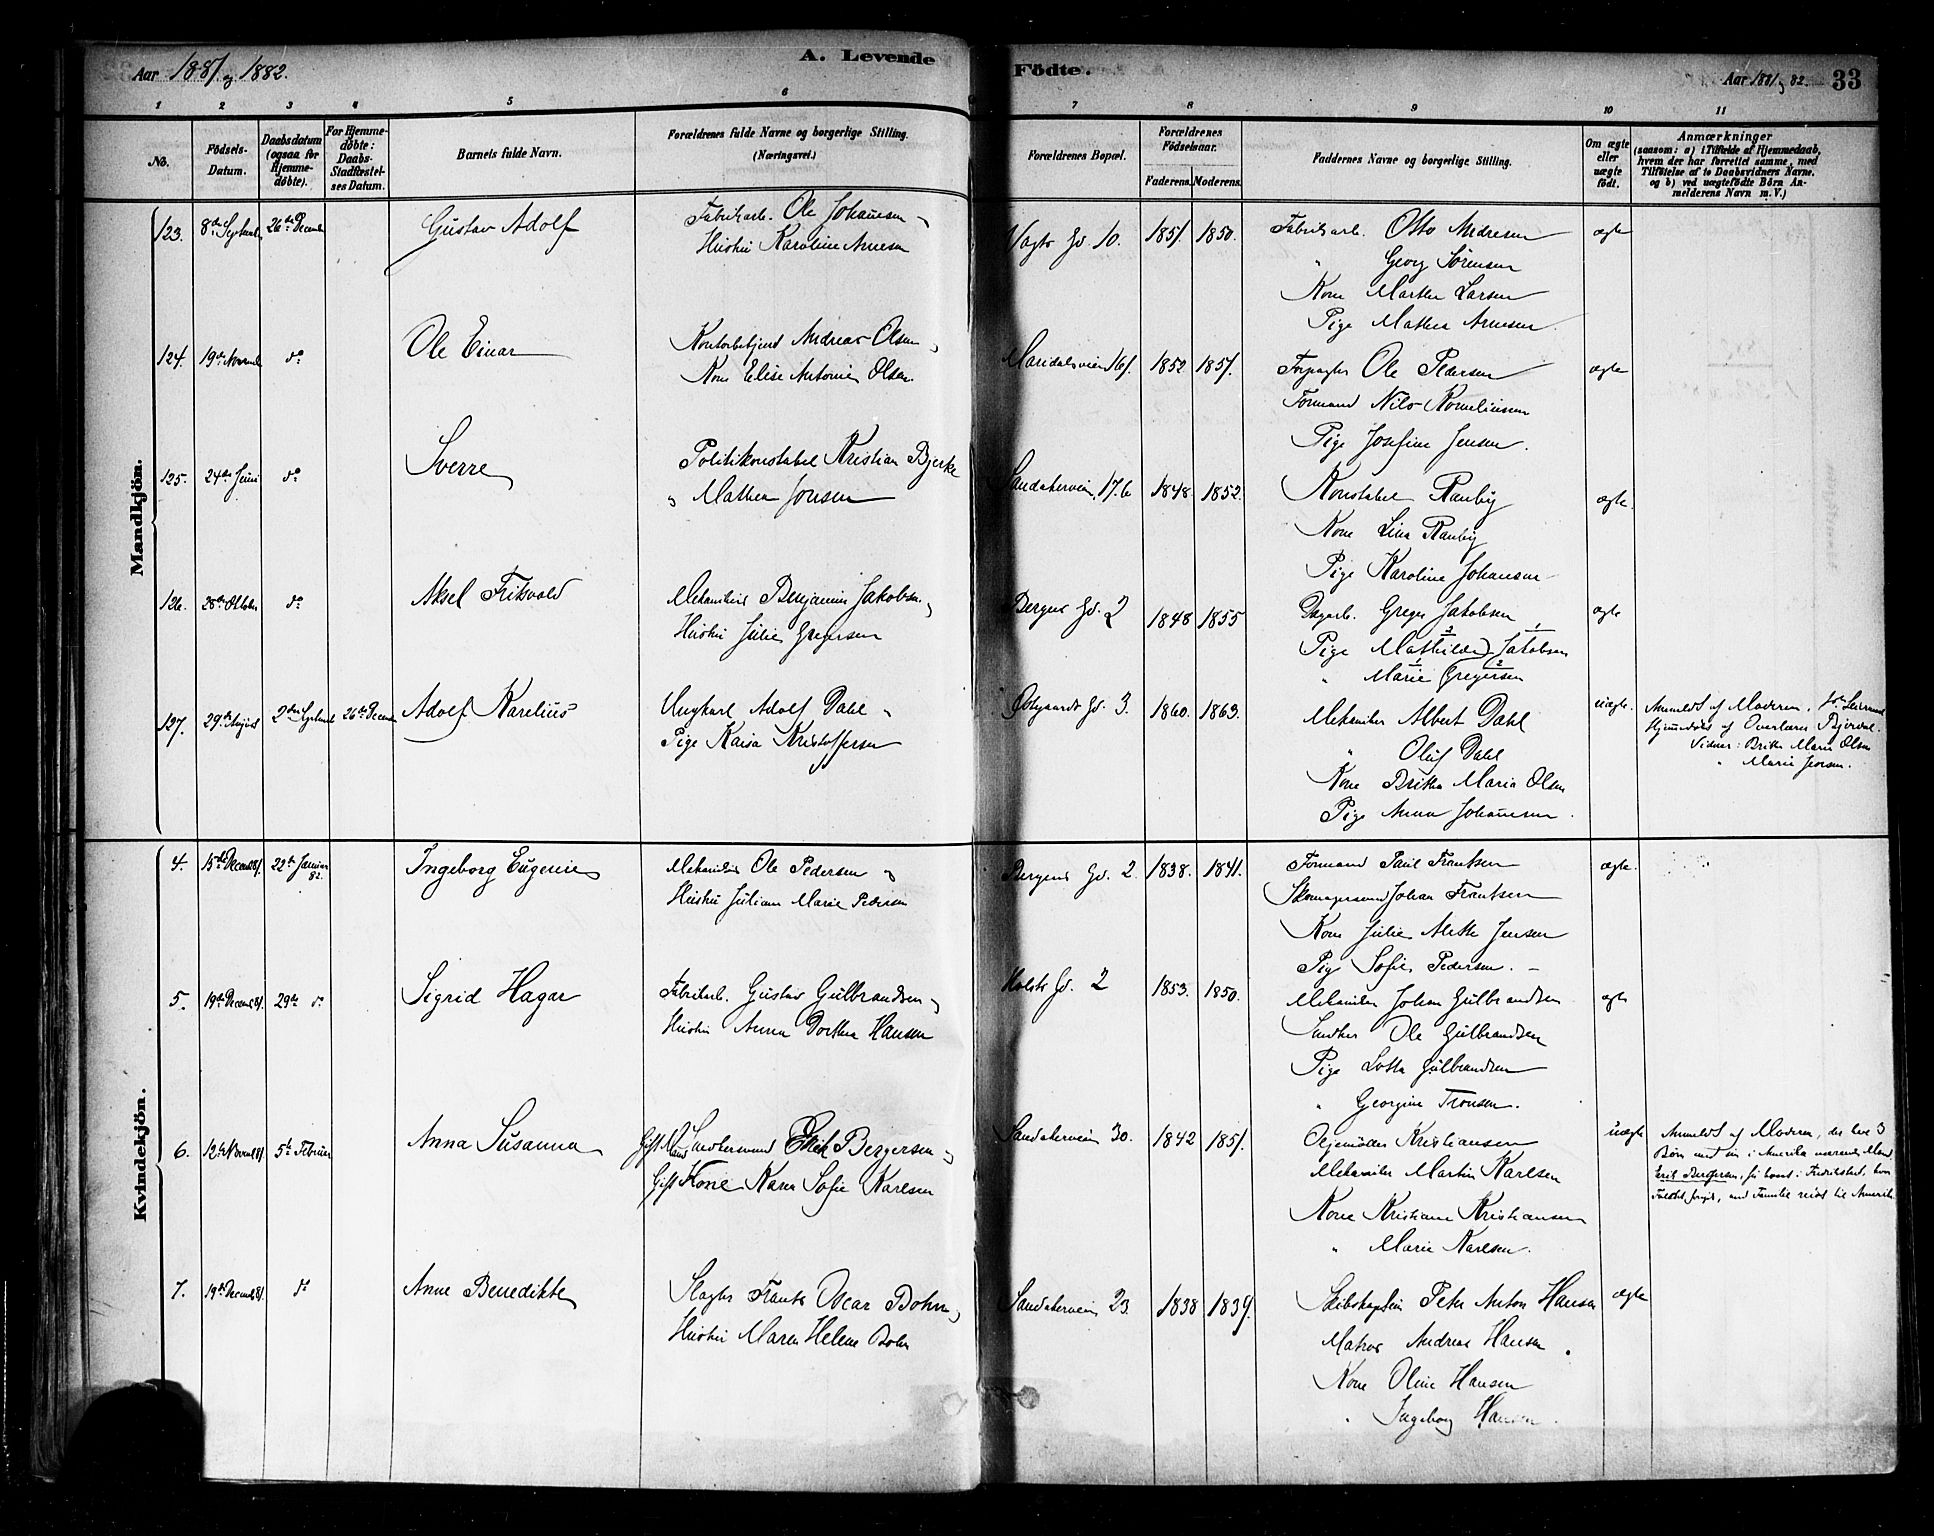 Aar 1881 og 1882.
A. Levende
Födte.
Aar 1881 og 82.
33
1 2 3 4 5 6 7 8 9 10 11
No.
Födsels-Datum.
Daabsdatum (ogsaa for Hjemme-döbte).
For Hjemme-döbte: Daabs-Stadfæstel-ses Datum.
Barnets fulde Navn.
Forældrenes fulde Navne og borgerlige Stilling. (Næringsvei.)
Forældrenes Bopæl.
Forældrenes Födselsaar.
Faderens. Moderens.
Faddernes Navne og borgerlige Stilling.
Om ægte eller uægte födt.
Anmærkninger
(saasom: a) i Tilfælde af Hjemmedaab,
hvem der har forrettet samme, med
Tilföielse af to Daabsvidners Navne.
og b) ved uægtefödte Börn An-
melderens Navn m.V.)
Mandkjön.
123. 8de Septembr 26de Decembr Gustav Adolf Fabrikarb. Ole Johannesen Vogts Gd. 10. 1851. 1850. Fabrikarb. Otto Andresen ægte
Hustru Karoline Arnesen " Georg Sørensen
Kone Marthe Larsen
Pige Mathea Arnesen
124. 19de Novembr do Ole Einar Kontorbetjent Andreas Olsen Maridalsveien 161. 1852 1851. Forpagter Ole Pedersen ægte
Kone Elise Antonie Olsen. Formand Nils Korneliussen
Pige Josefine Jensen.
125. 24de Juni do Sverre Politikonstabel Kristian Bjerke Sandakerveien 17.b 1848. 1852. Konstabel Ranby ægte.
" Mathea Jonsen Kone Lina Ranby
Pige Karoline Johansen
126. 28de Oktober do Aksel Friksvold Mekanikus Benjamin Jakobsen Bergens Gd. 2 1848 1855 Dagarb. Greger Jakobsen ægte
Hustru Julie Gregersen Pige Mathilde Jakobsen
" Marie Gregersen
127. 29de August 2den September 26de Decembr Adolf Karelius Ungkarl Adolf Dahl Østgaards Gd. 3. 1860. 1863. Mekaniker Albert Dahl uægte. Anmeldt af Moderen.
Pige Kaisa Kristoffersen " Oluf Dahl Hjemmedøbt af Overlærer Bjerdal.
Kone Britha Maria Olsen Vidner: Britha Marie Olsen
Pige Anna Johannesen " Marie Jensen.
Kvindekjön.
4. 15de Decembr 81. 22de Januar 82. Ingeborg Eugenie Mekanikus Ole Pedersen Bergens Gd. 2. 1838. 1841. Formand Paul Frantsen ægte.
Hustru Juliane Marie Pedersen Skomagersvend Johan Frantsen
Kone Julie Alethe Jensen
Pige Sofie Pedersen.
5. 19de Decembr 81. 29de do Sigrid Hagar Fabrikarb. Gustav Gulbrandsen Holsts Gd. 2 1853. 1850. Mekaniker Johan Gulbrandsen ægte
Hustru Anna Dorthea Hansen Snedker Ole Gulbrandsen
Pige Lotta Gulbrandsen
" Georgine Tronsen.
6. 12te Novembr 81 5te Februar Anna Susanna Gift Mand Snedkersvend Erik Bergersen Sandakerveien 30. 1842 1851. Oljemøller Kristiansen uægte Anmeldt af Moderen, der hvr 3
Gift Kone Karen Sofie Karlsen Mekaniker Martin Karlsen Børn med sin i Amerika værende Mand
Kone Kristiane Kristiansen Erik Bergersen,
" Marie Karlsen.
7. 19de Decembr 81. do Anne Benedikte Slagter Frants Oscar Bohn Sandakerveien 23. 1838 1839. Skibskaptein Peter Anton Hansen ægte
Hustru Maren Helene Bohn Matros Andreas Hansen
Kone Oline Hansen
" Ingeborg Hansen